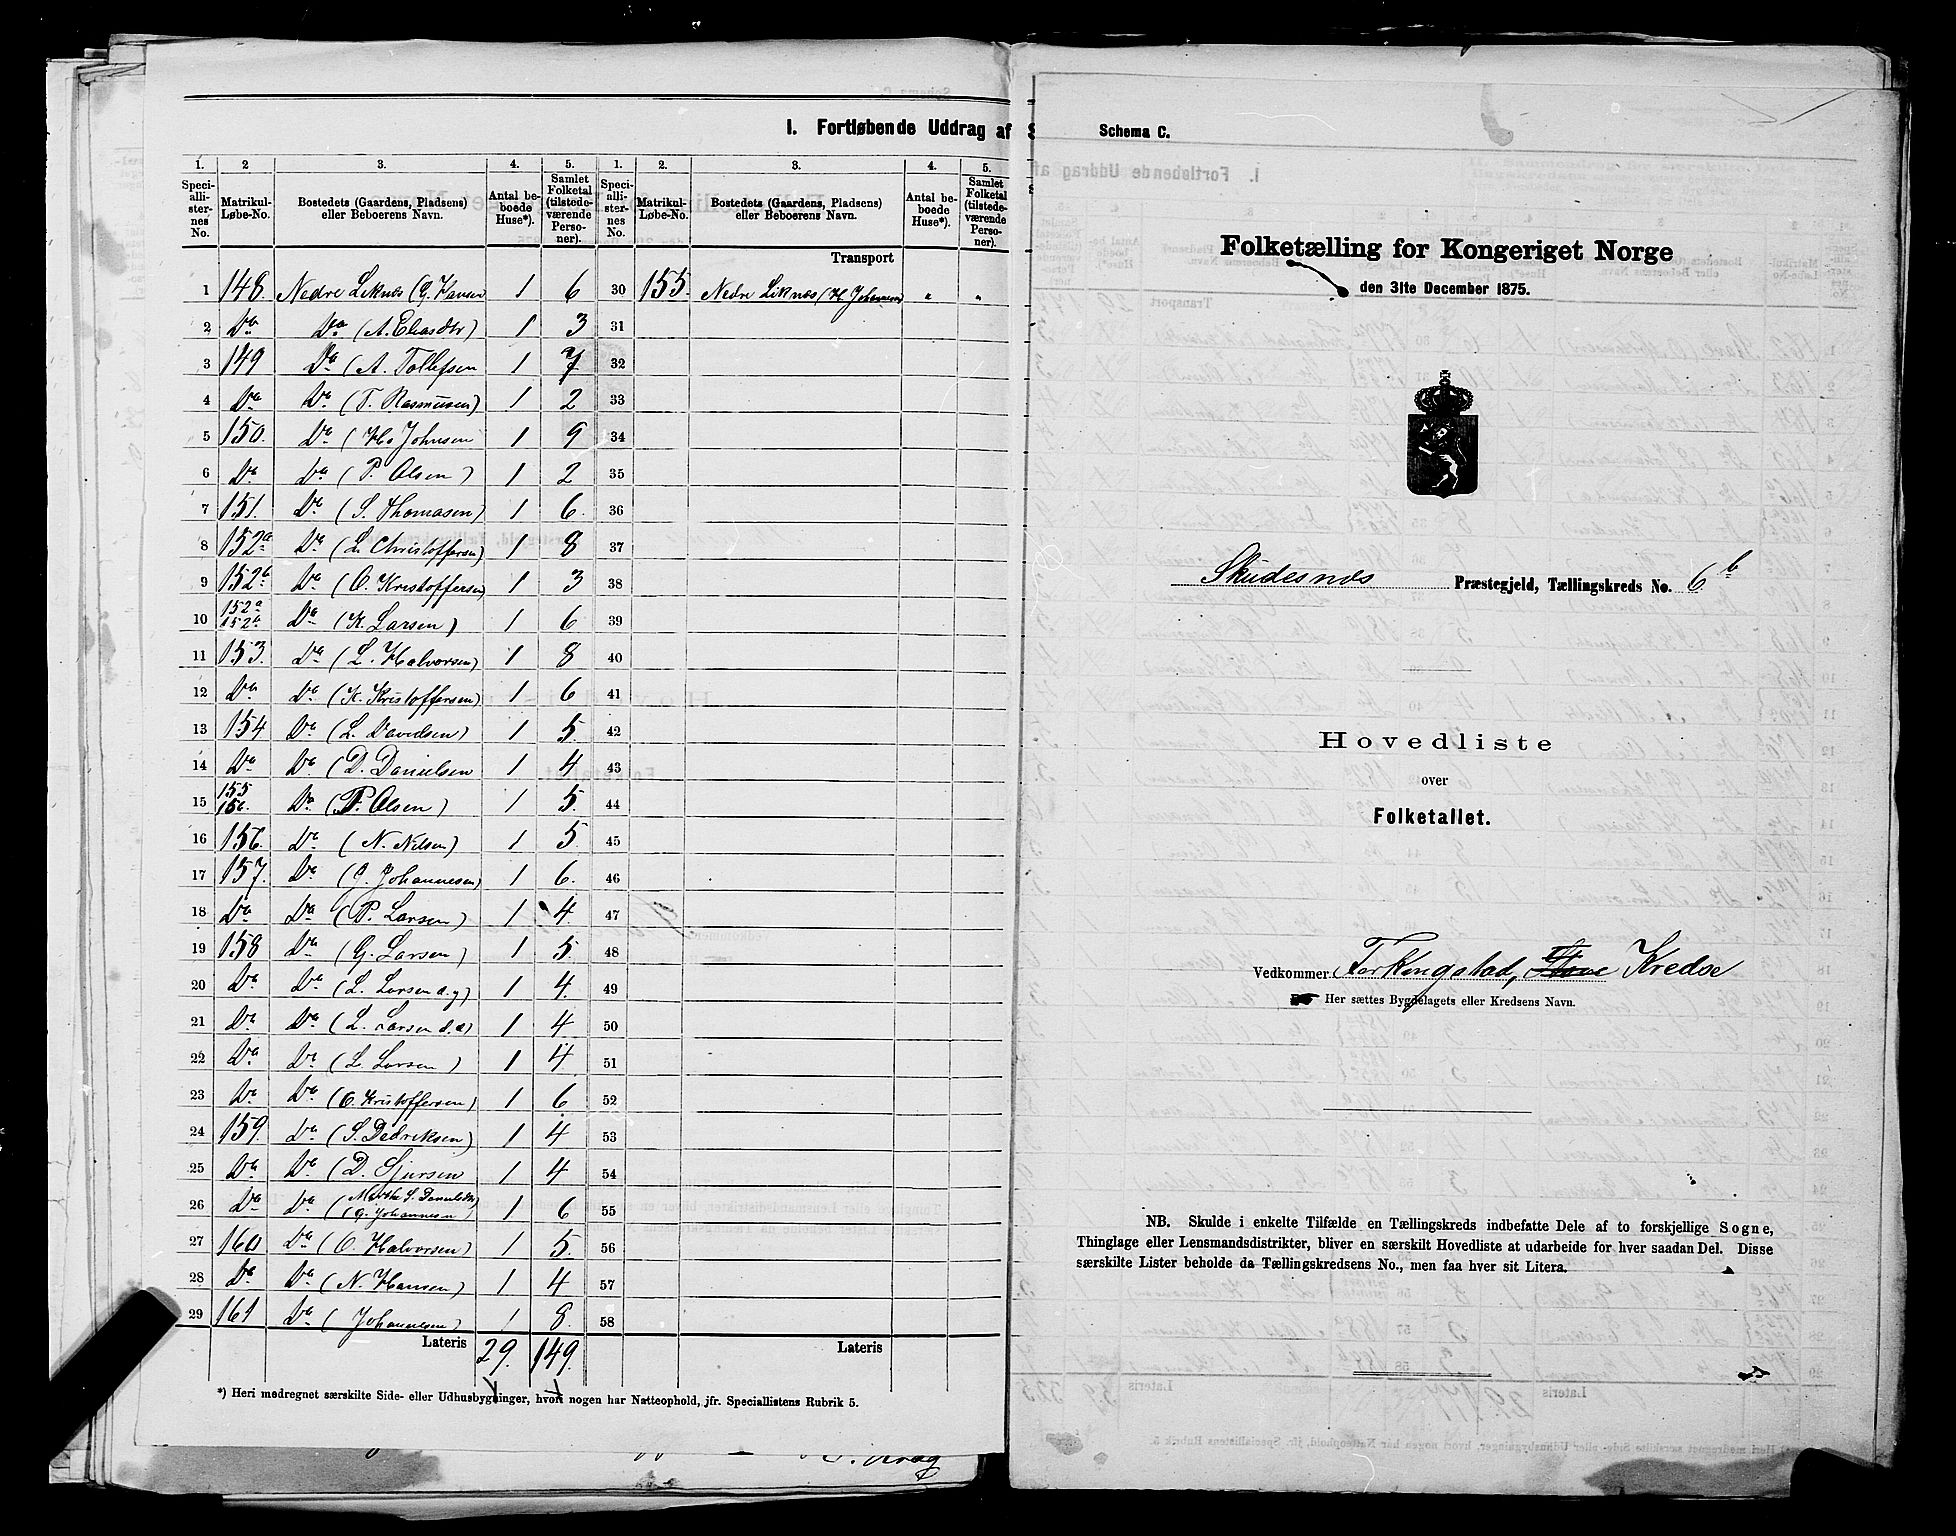 I. Fortløbende Uddrag af S
1. 2 3. 4. 5. 1. 2. 3. 4. 5.
Speciallisternes No. Matrikul-Løbe-No. Bostedets (Gaardens, Pladsens) eller Beboerens Navn. Antal beboede Huse*). Samlet Folketal (tilstedeværende Personer). Speciallisternes No. Matrikul-Løbe-No. Bostedets (Gaardens, Pladsens) eller Beboerens Navn. Antal beboede Huse*). Samlet Folketal (tilstedeværende Personer).
Transport
1 148. Nedre Liknes (G. Hansen 1 6 30 155. Nedre Liknes (H Johannesen „ „
2 Do Do (A. Eliasdtr) 1 3 31
3 149 Do (A. Tollefsen 1 7 32
4 Do Do (T. Rasmusen) 1 2 33
5 150. Do (H. Johnsen 1 9 34
6 Do Do (P. Olsen) 1 2 35
7 151. Do (S. Thomasen) 1 6. 36
8 152a Do (L. Christoffersen) 1 8 37
9 152b Do (O. Kristoffersen) 1 3 38
10 152a 152b Do (K. Larsen) 1 6 39
11 153. Do (L. Halvorsen) 1 8 40
12 Do Do (K. Kristoffersen) 1 6 41
13 154 Do (L. Davidsen) 1 5. 42
14 Do Do (D. Danielsen 1 4 43
15 155 156. Do (P. Olsen) 1 5. 44
16 156. Do (N. Nilsen) 1 5. 45
17 157. Do (G. Johannesen) 1 6. 46
18 Do Do (P. Larsen) 1 4. 47
19 158 Do (G. Larsen) 1 5. 48
20 Do Do (L. Larsen d.y) 1 4. 49
21 Do Do (L. Larsen d.æ) 1 4 50
22 Do Do (L. Larsen) 1 4 51
23 Do Do (O. Kristoffersen) 1 6 52
24 159. Do (S. Dedriksen) 1 4 53
25 Do Do (D. Sjursen 1 4 54
26 Do Do (Marthe S. Danieldtr (G. Johannesen) 1 6 55
27 160 Do (O. Halvorsen) 1 5. 56
28 Do Do (N. Hansen) 1 4 57
29 161 Do (Johannesen) 1 8. 58
Lateris 29. 149. Lateris
*) Heri medregnet særskilte Side- eller Udhusbygninger, hvori nogen har Natteophold, jfr. Speciallistens Rubrik 5.
Schema C.
Folketælling for Kongeriget Norge
den 31te December 1875.
Skudesnæs Præstegjeld, Tællingskreds No. 6 b
Hovedliste
over
Folketallet.
Vedkommer Ferkingstad, Stave Kredse
Her sættes Bygdelagets eller Kredsens Navn.
NB. Skulde i enkelte Tilfælde en Tællingskreds indbefatte Dele af to forskjellige Sogne,
Thinglage eller Lensmandsdistrikter, bliver en særskilt Hovedliste at udarbeide for hver saadan Del. Disse
særskilte Lister beholde da Tællingskredsens No., men faa hver sit Litera.